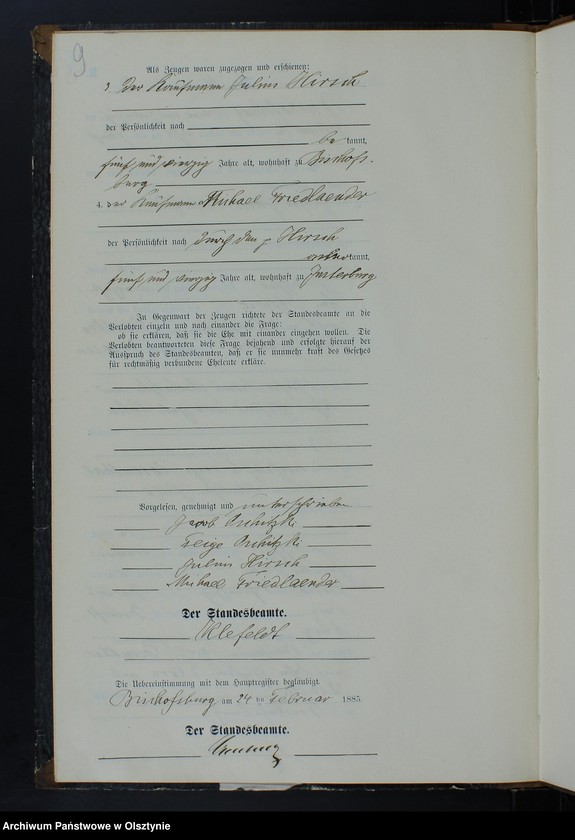 9
Als Zeugen waren zugezogen und erschienen:
3. der Kaufmann Julius Hirsch
der Persönlichkeit nach
be kannt,
fünf und vierzig Jahre alt, wohnhaft zu Bischofs-
burg
4. der Kaufmann Michael Friedlaender
der Persönlichkeit nach durch den p Hirsch
anerkannt,
fünf und vierzig Jahre alt, wohnhaft zu Insterburg
In Gegenwart der Zeugen richtete der Standesbeamte an die
Verlobten einzeln und nach einander die Frage:
ob sie erklären, daß sie die Ehe mit einander eingehen wollen. Die
Verlobten beantworteten diese Frage bejahend und erfolgte hierauf der
Ausspruch des Standesbeamten, daß er sie nunmehr kraft des Gesetzes
für rechtmäßig verbundene Eheleute erkläre.
Vorgelesen, genehmigt und unterschrieben
Jacob
Feige
Julius Hirsch
Michael Friedlaender
Der Standesbeamte.
Klefeldt
Die Uebereinstimmung mit dem Hauptregister beglaubigt.
Bischofsburg am 24 ten Februar 1885
Der Standesbeamte.
Archiwum Państwowe w Olsztynie